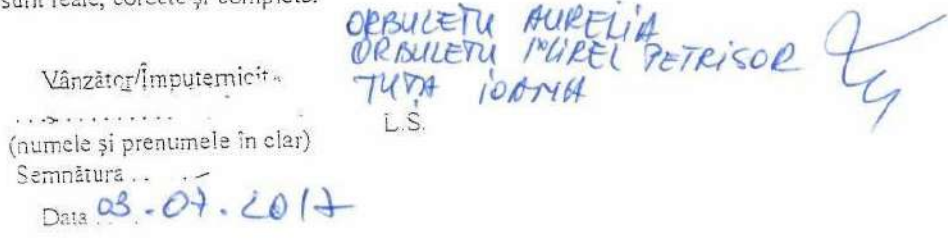 sunt reale, corecte și complete.
ORBULETU AURELIA
ORBULETU MIREL PETRISOR
Vânzător/Împuternicit
TUTA IOANA
..........
L.S.
(numele și prenumele în clar)
Semnătura . .
Data 03.07.2017